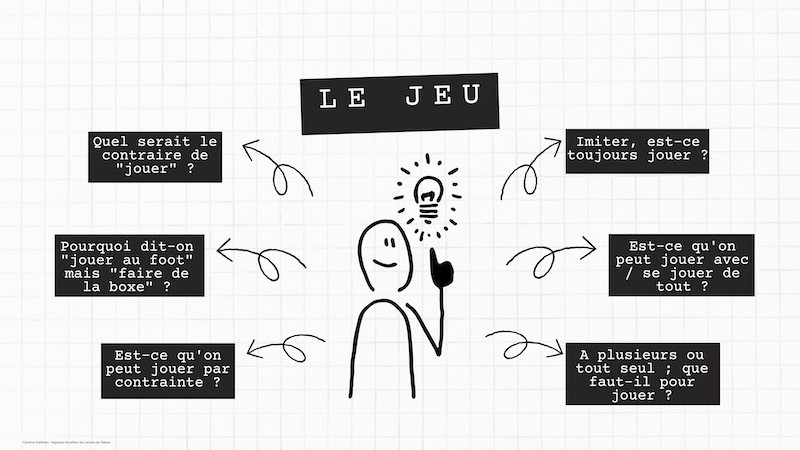 LE JEU
Quel serait le
contraire de
"jouer" ?
Imiter, est-ce
toujours jouer ?
Pourquoi dit-on
"jouer au foot"
mais "faire de
la boxe" ?
Est-ce qu'on
peut jouer avec
/ se jouer de
tout ?
Est-ce qu'on
peut jouer par
contrainte ?
A plusieurs ou
tout seul ; que
faut-il pour
jouer ?